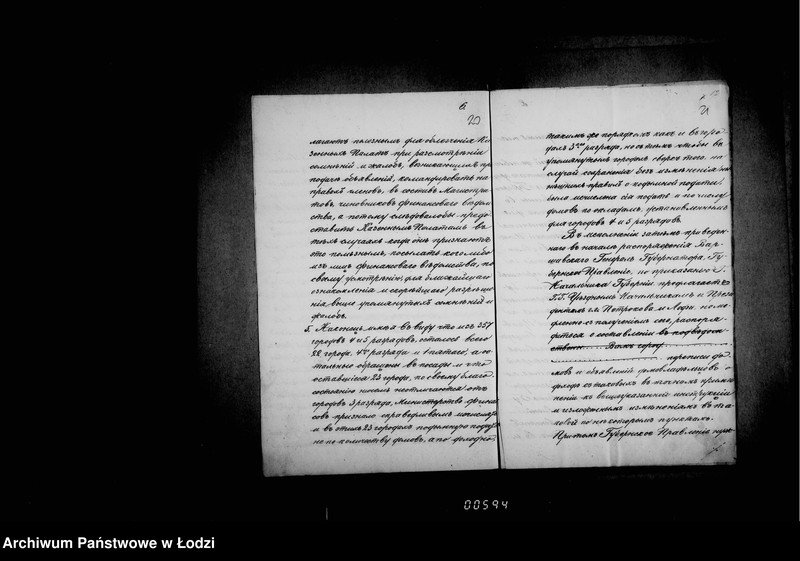 6
20
лагаютъ полезнымъ для облегченія Ка
зенныхъ Палатъ при разсмотрѣніи
сомнѣній и жалобъ, возникающихъ при
подачѣ объявленій, командировать на
правахъ членовъ, въ составъ Магистра
товъ чиновниковъ финансоваго вѣдом
ства, а потому слѣдовало бы предо
ставить Казеннымъ Палатамъ въ
тѣхъ случаяхъ когда онѣ признаютъ
это полезнымъ, посылать кого либо
изъ лицъ финансоваго вѣдомства, по
своему усмотрѣнію, для ближайшаго
ознакомленія и скорѣйшаго разрѣше
нія выше упомянутыхъ сомнѣній и
жалобъ.
5. Наконецъ имѣя въ виду что изъ 357
городовъ 4 и 5 разрядовъ, осталось всего
22 города 4го разряда и 1 пятаго, а ос
тальные обращены въ посады и что
оставшіеся 23 города, по своему благо
состоянію ничѣмъ не отличаются отъ
городовъ 3 разряда, Министерство финан
совъ признало справедливымъ
и въ этихъ 23 городахъ подымную подать
не по количеству домовъ, а по доходно
21
такимъ же порядкомъ какъ и въ горо
дахъ 3го разряда, но съ тѣмъ чтобы въ
упомянутыхъ городахъ сверхъ того, на
случай сохраненія безъ измѣненія
нынѣшнихъ правилъ о подымной подати,
была исчислена сія подать и по числу
домовъ по окладамъ, установленнымъ
для городовъ 4 и 5 разрядовъ.
Въ исполненіи затѣмъ приведен
наго въ началѣ распоряженія Вар
шавскаго Генералъ Губернатора, Гу
бернское Правленіе, по приказанію Г.
Начальника Губерніи предлагаетъ
Г.Г. Уѣзднымъ Начальникамъ и Прези
дентамъ г.г. Петрокова и Лодзи, неме
дленно съ полученіемъ сего, распоря
диться о составленіи въ подвѣдом
ственн Вамъ город
переписи до
мовъ и объявленій домовладѣльцевъ о
доходѣ съ таковыхъ въ точномъ примѣ
неніи къ вышеуказанной инструкціи
и изложеннымъ измѣненіямъ въ та
ковой по нѣкоторымъ пунктамъ.
Притомъ Губернское Правленіе
00594
Archiwum Państwowe w Łodzi